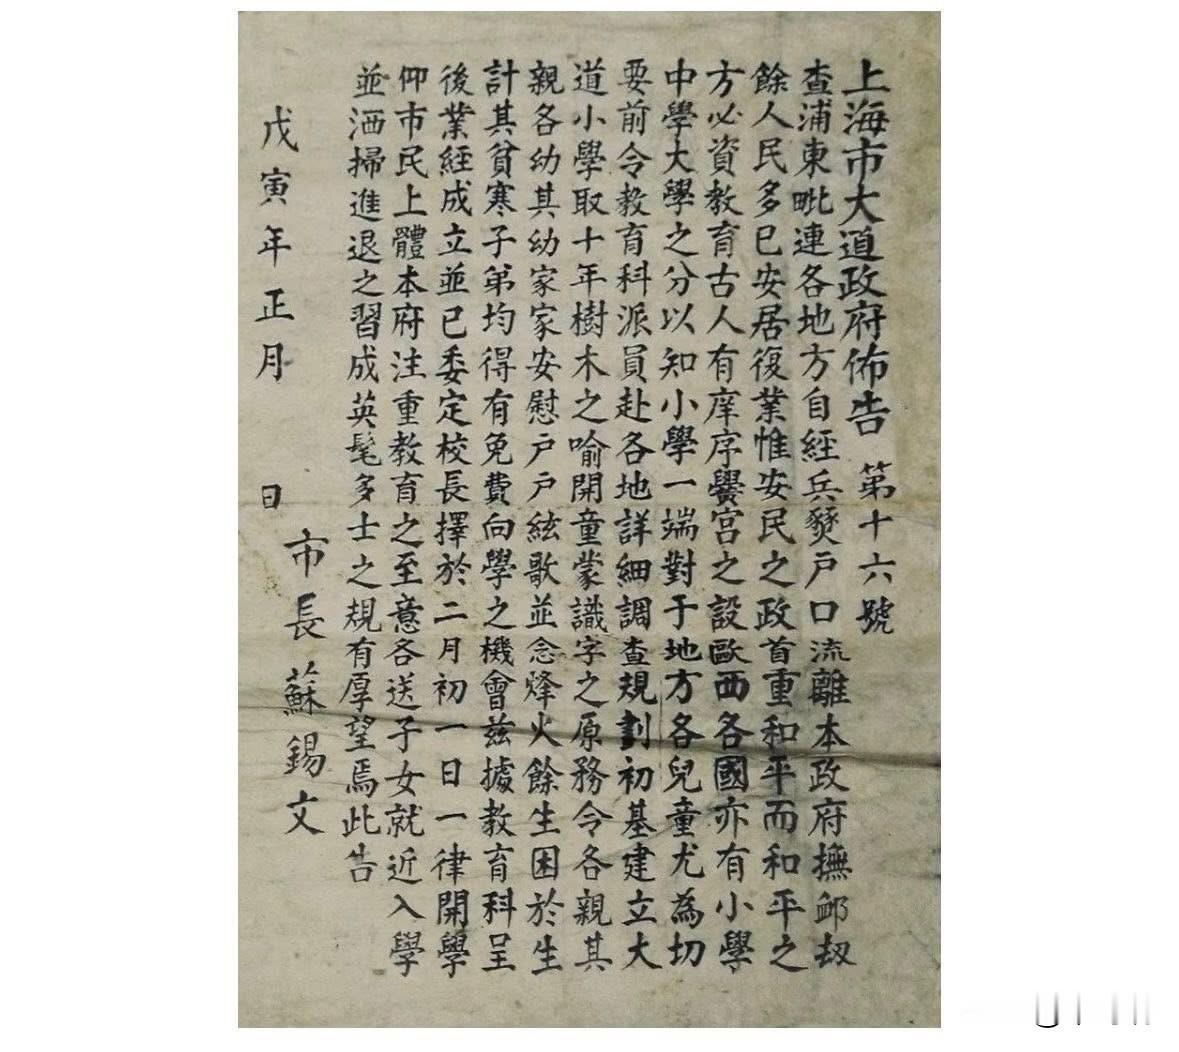 上海市大道政府佈告 第十六號
查浦東毗連各地方自經兵燹戶口流離本政府撫卹劫
餘人民多已安居復業惟安民之政首重和平而和平之
方必資教育古人有庠序黌宮之設歐西各國亦有小學
中學大學之分以知小學一端對于地方各兒童尤為切
要前令教育科派員赴各地詳細調查規劃初基建立大
道小學取十年樹木之喻開童蒙識字之原務令各親其
親各幼其幼家家安慰戶戶絃歌並念烽火餘生困於生
計其貧寒子弟均得有免費向學之機會茲據教育科呈
後業經成立並已委定校長擇於二月初一日一律開學
仰市民上體本府注重教育之至意各送子女就近入學
並洒掃進退之習成英髦多士之規有厚望焉此告
市長蘇錫文
戊寅年正月 日